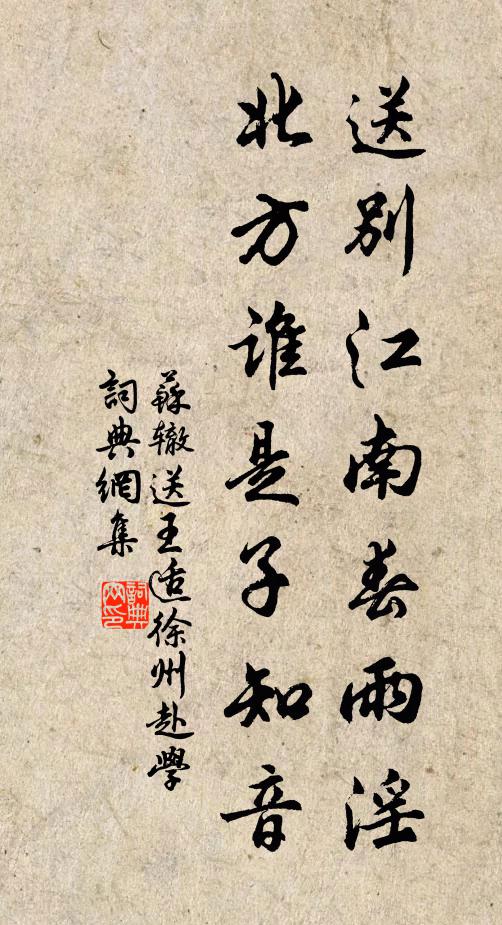 送别江南春雨淫
北方誰是子知音
蘇辙送王适徐州赴學
詞典網集
詞典网印